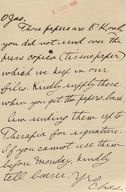 O Jas.
These papers are O'K and
you did not send over the
press copies (tissue paper)
which we keep in our
files. Kindly supply these
when you get the papers back
Am sending them up to
Therapie for signature.
If you cannot use them
before Monday, kindly
tell bearer. Yrs
Chas